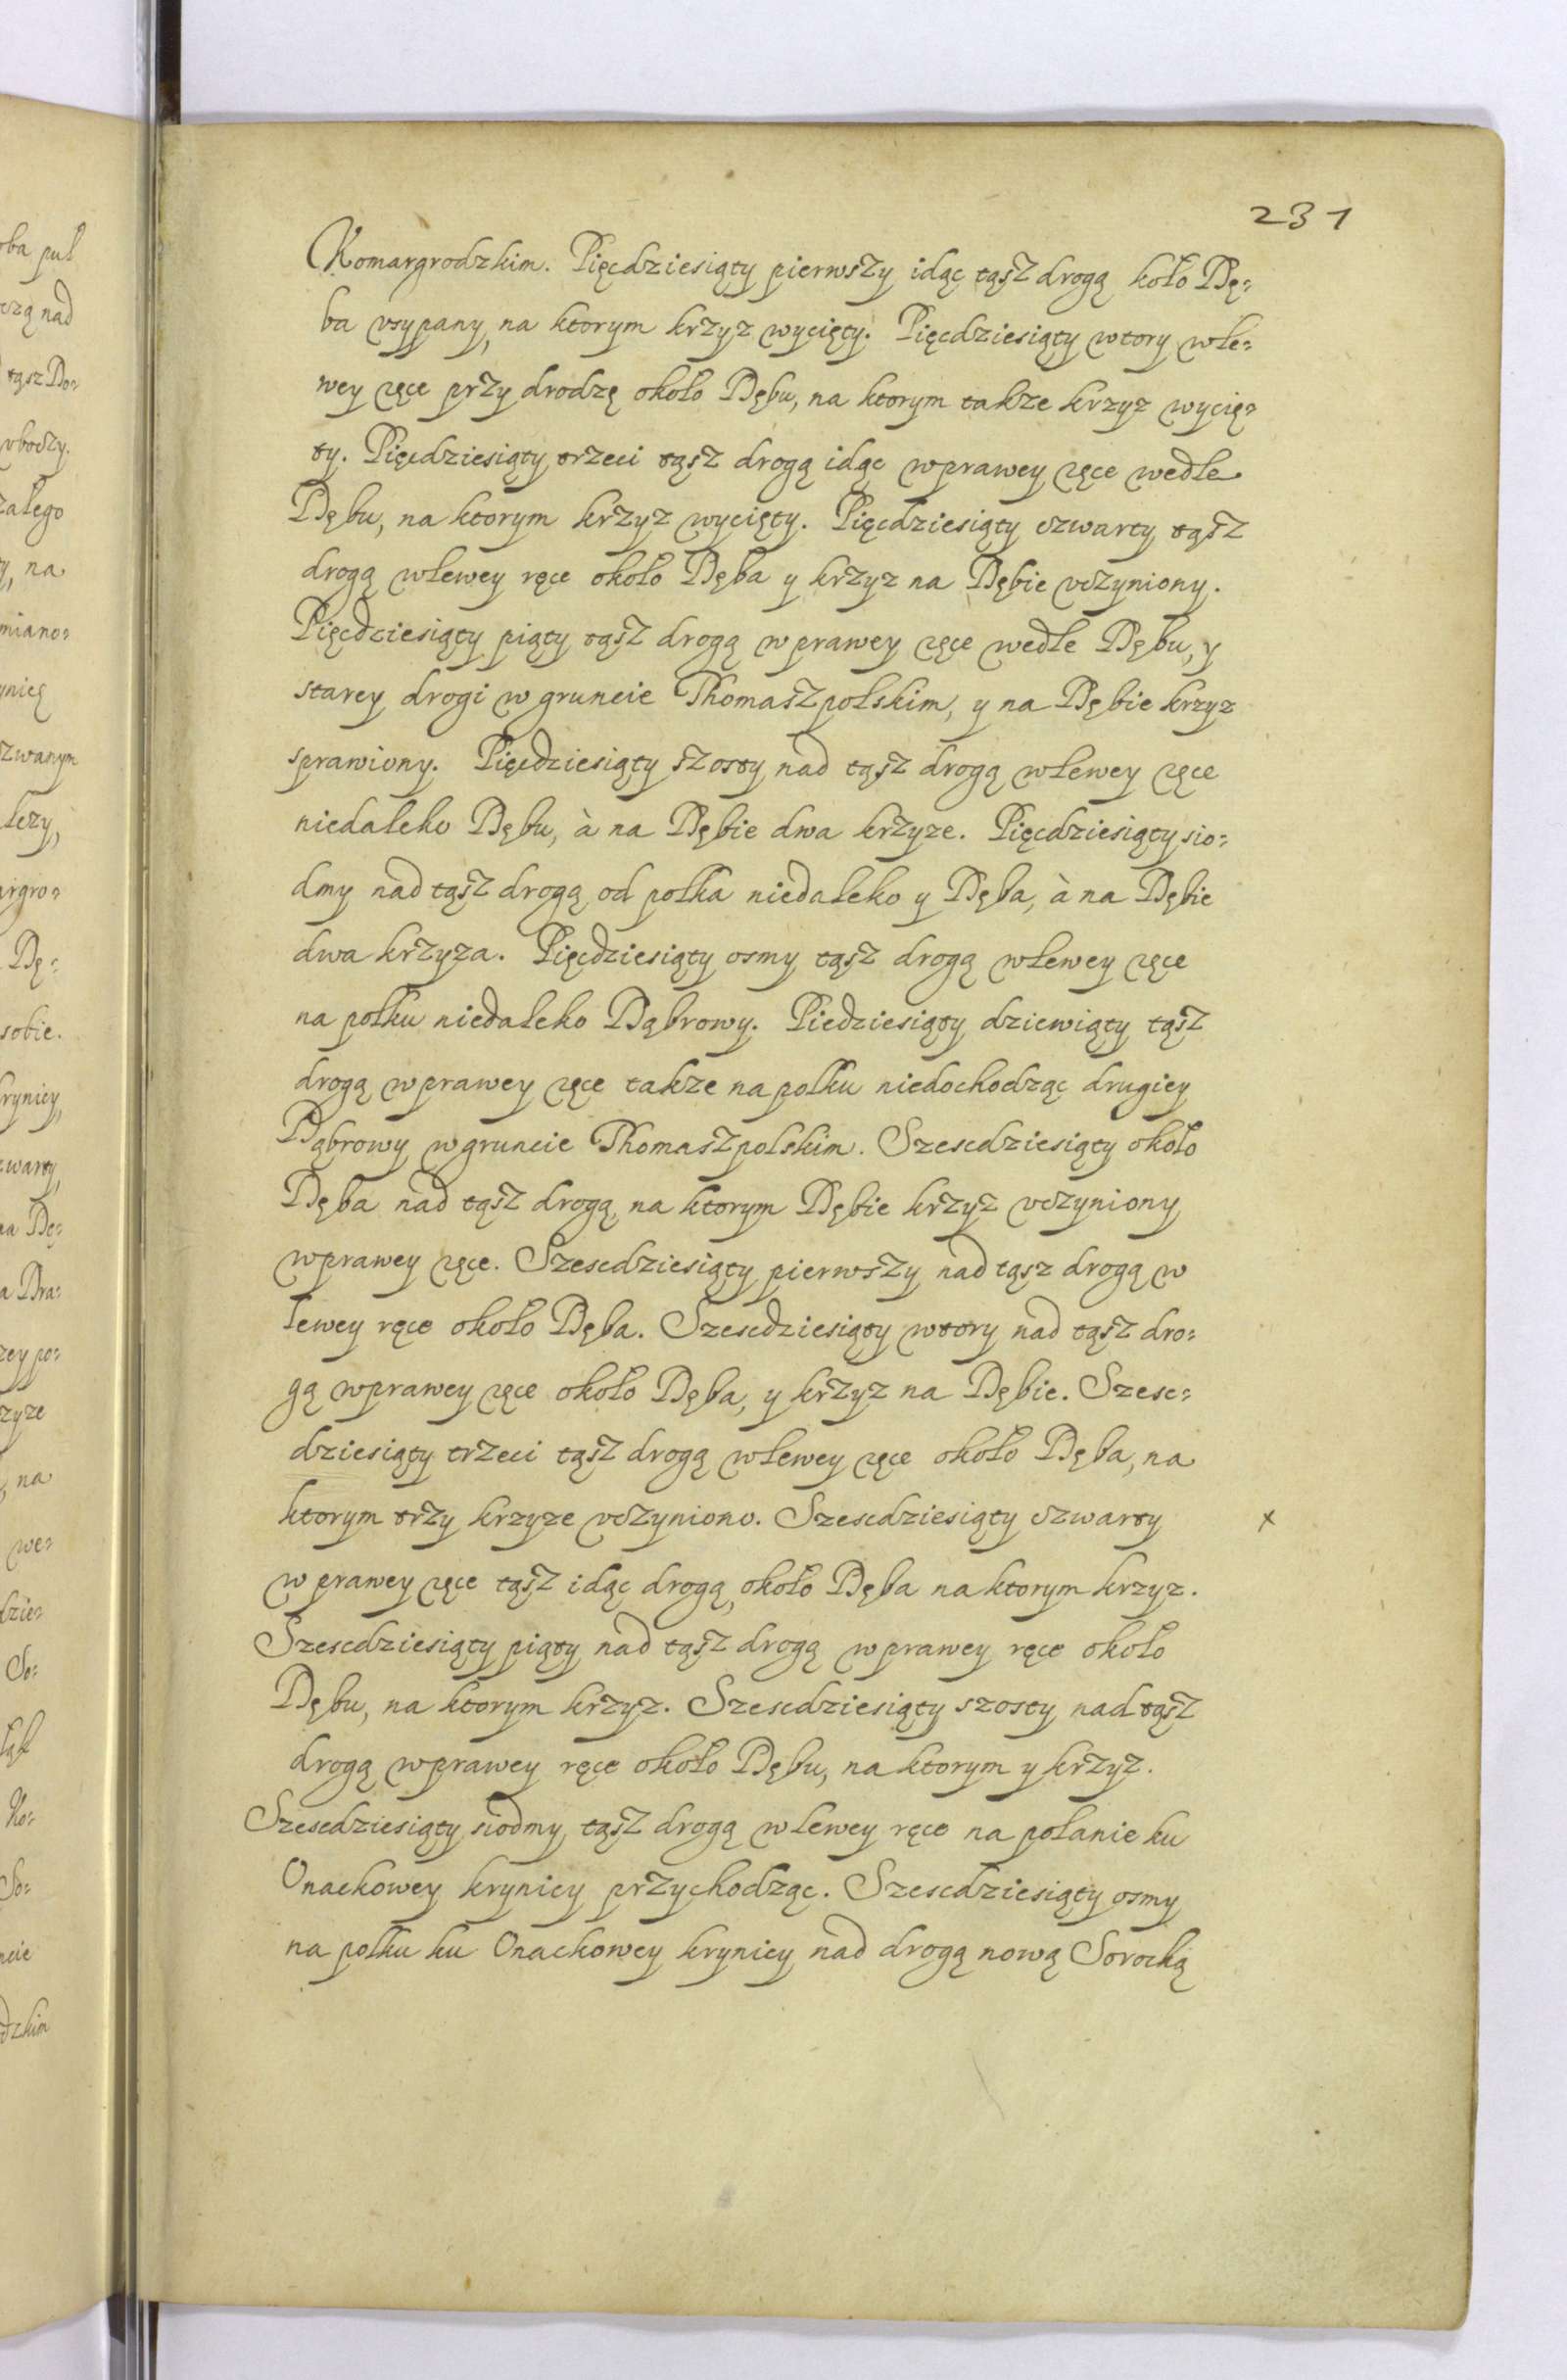 231
Komargrodzkim. Pięcdziesiąty pierwszy idąc tąsz drogą koło Dę=
ba vsypany, na ktorym krzyz wycięty. Pięcdziesiąty wtory wle=
wey ręce przy drodzę około Dębu, na ktorym takze krzyz wycię=
ty. Pięcdziesiąty trzeci tąsz drogą idąc wprawey ręce wedle
Dębu, na ktorym krzyz wycięty. Pięcdziesiąty czwarty tąsz
drogą wlewey ręce około Dęba y krzyz na Dębie vczyniony.
Pięcdziesiąty piąty tąsz drogą wprawey ręce wedle Dębu, y
starey drogi w gruncie Thomaszpolskim, y na Dębie krzyz
sprawiony. Pięcdziesiąty szosty nad tąsz drogą wlewey ręce
niedaleko Dębu, à na Dębie dwa krzyze. Pięcdziesiąty sio=
dmy nad tąsz drogą od polka niedaleko y Dęba, à na Dębie
dwa krzyza. Pięcdziesiąty osmy tąsz drogą wlewey ręce
na polku niedaleko Dąbrowy. Piedziesiąty dziewiąty tąsz
drogą wprawey ręce takze na polku niedochodząc drugiey
Dąbrowy wgruncie Thomaszpolskim. Szescdziesiąty około
Dęba nad tąsz drogą na ktorym Dębie krzyz vczyniony
wprawey ręce. Szescdziesiąty pierwszy nad tąsz drogą w
lewey ręce około Dęba. Szescdziesiąty wtory nad tąsz dro=
gą wprawey ręce około Dęba, y krzyz na Dębie. Szesc=
dziesiąty trzeci tąsz drogą wlewey ręce około Dęba, na
ktorym trzy krzyze vczyniono. Szescdziesiąty czwarty x
wprawey ręce tąsz idąc drogą, około Dęba na ktorym krzyz.
Szescdziesiąty piąty nad tąsz drogą wprawey ręce około
Dębu, na ktorym krzyz. Szescdziesiąty szosty nad tąsz
drogą wprawey ręce około Dębu, na ktorym y krzyz.
Szescdziesiąty siodmy tąsz drogą wlewey ręce na polanie ku
Onackowey krynicy przychodząc. Szescdziesiąty osmy
na polku ku Onackowey krynicy nad drogą nową Sorocką